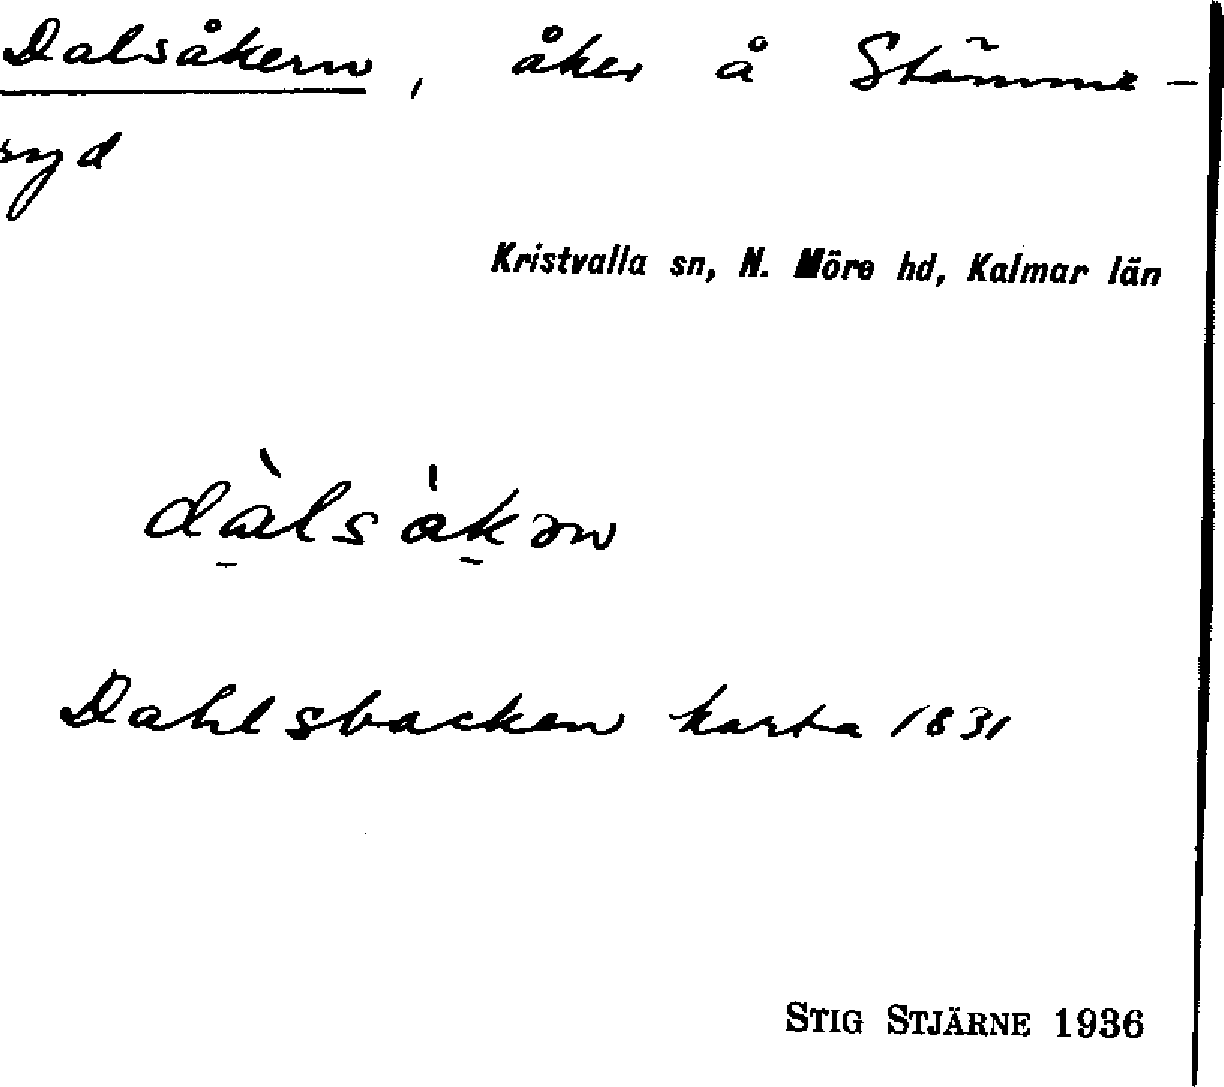 Dalsåkern, åker å Stämme-
ryd
Kristvalla sn, N. Möre hd, Kalmar län
dàls åkən
Dahlsbacken karta 1831
STIG STJÄRNE 1936